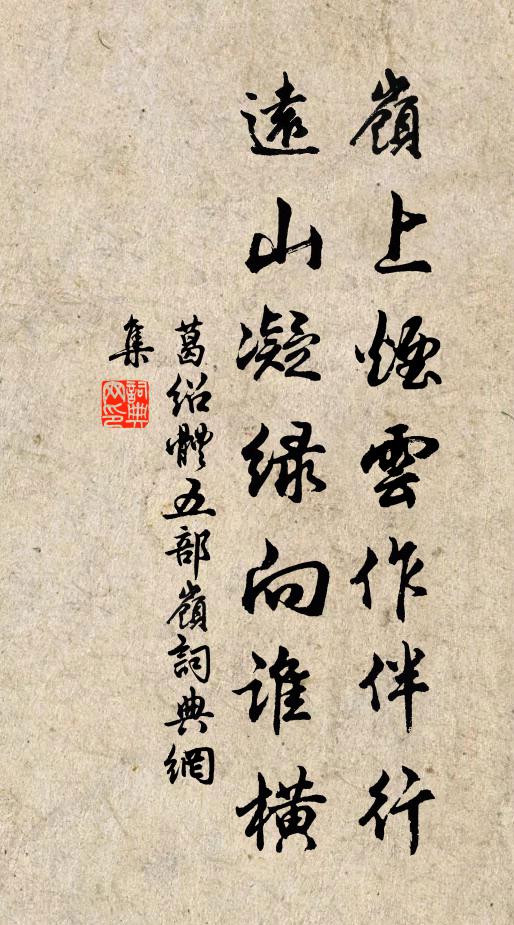 嶺上煙雲作伴行
遠山凝緑向誰橫
葛紹體五部嶺詞典網
集
詞典
网印